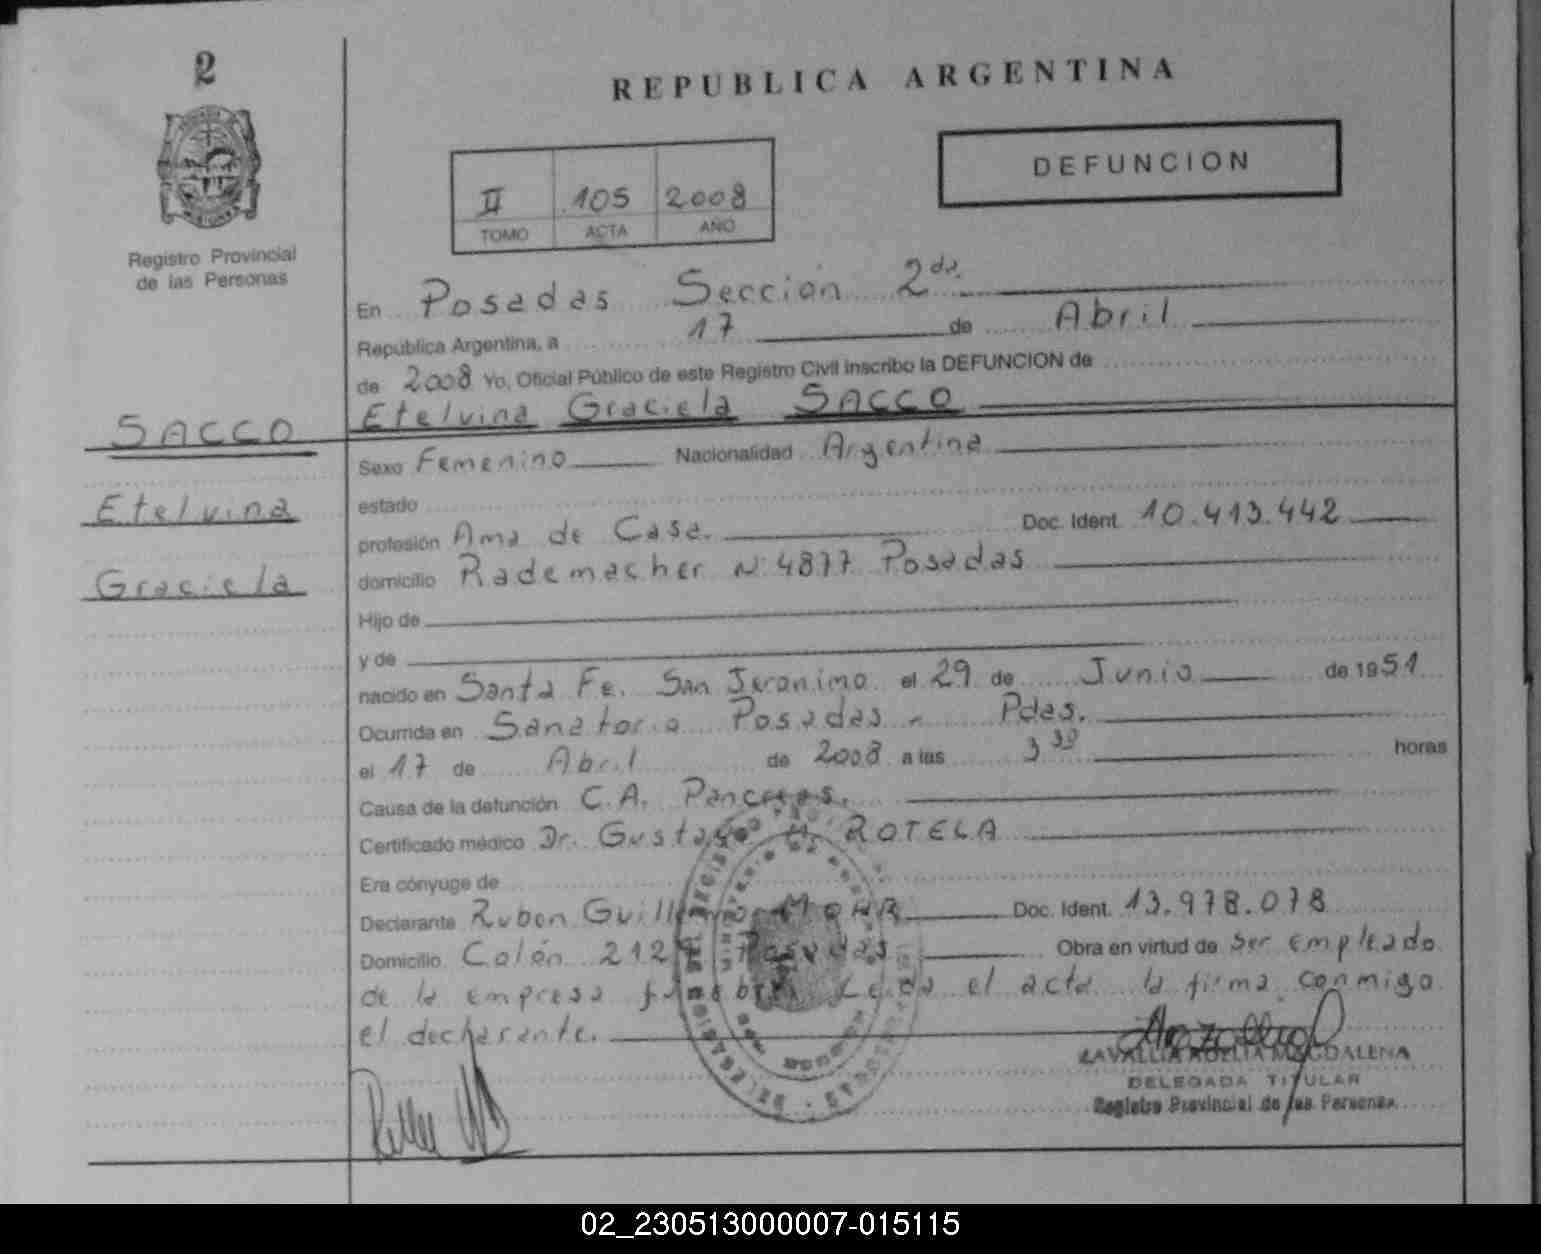 2
REPUBLICA ARGENTINA
II 105 2008
TOMO ACTA AÑO
DEFUNCION
Registro Provincial
de las Personas
En Posadas Sección 2da.
República Argentina, a 17 de Abril
de 2008 Yo, Oficial Público de este Registro Civil inscribo la DEFUNCION de
Etelvina Graciela SACCO
SACCO
Etelvina
Graciela
Sexo Femenino Nacionalidad Argentina
estado
profesión Ama de Casa. Doc. Ident. 10.413.442
domicilio Rademacher N° 4877 Posadas
Hijo de
y de
nacido en Santa Fe. San Jeronimo el 29 de Junio de 1951
Ocurrida en Sanatorio Posadas - Pdas.
el 17 de Abril de 2008 a las 3 30 horas
Causa de la defunción C.A. Pancreas.
Certificado médico Dr. Gustavo H. ROTELA
Era cónyuge de
Declarante Ruben Guillermo MOHR Doc. Ident. 13.978.078
Domicilio Colón 212 Posadas Obra en virtud de ser empleado
de la empresa funebre Leida el acta la firma conmigo
el declarante.
ZAVALLIA ADELIA MAGDALENA
DELEGADA TITULAR
Registro Provincial de las Personas
02_230513000007-015115